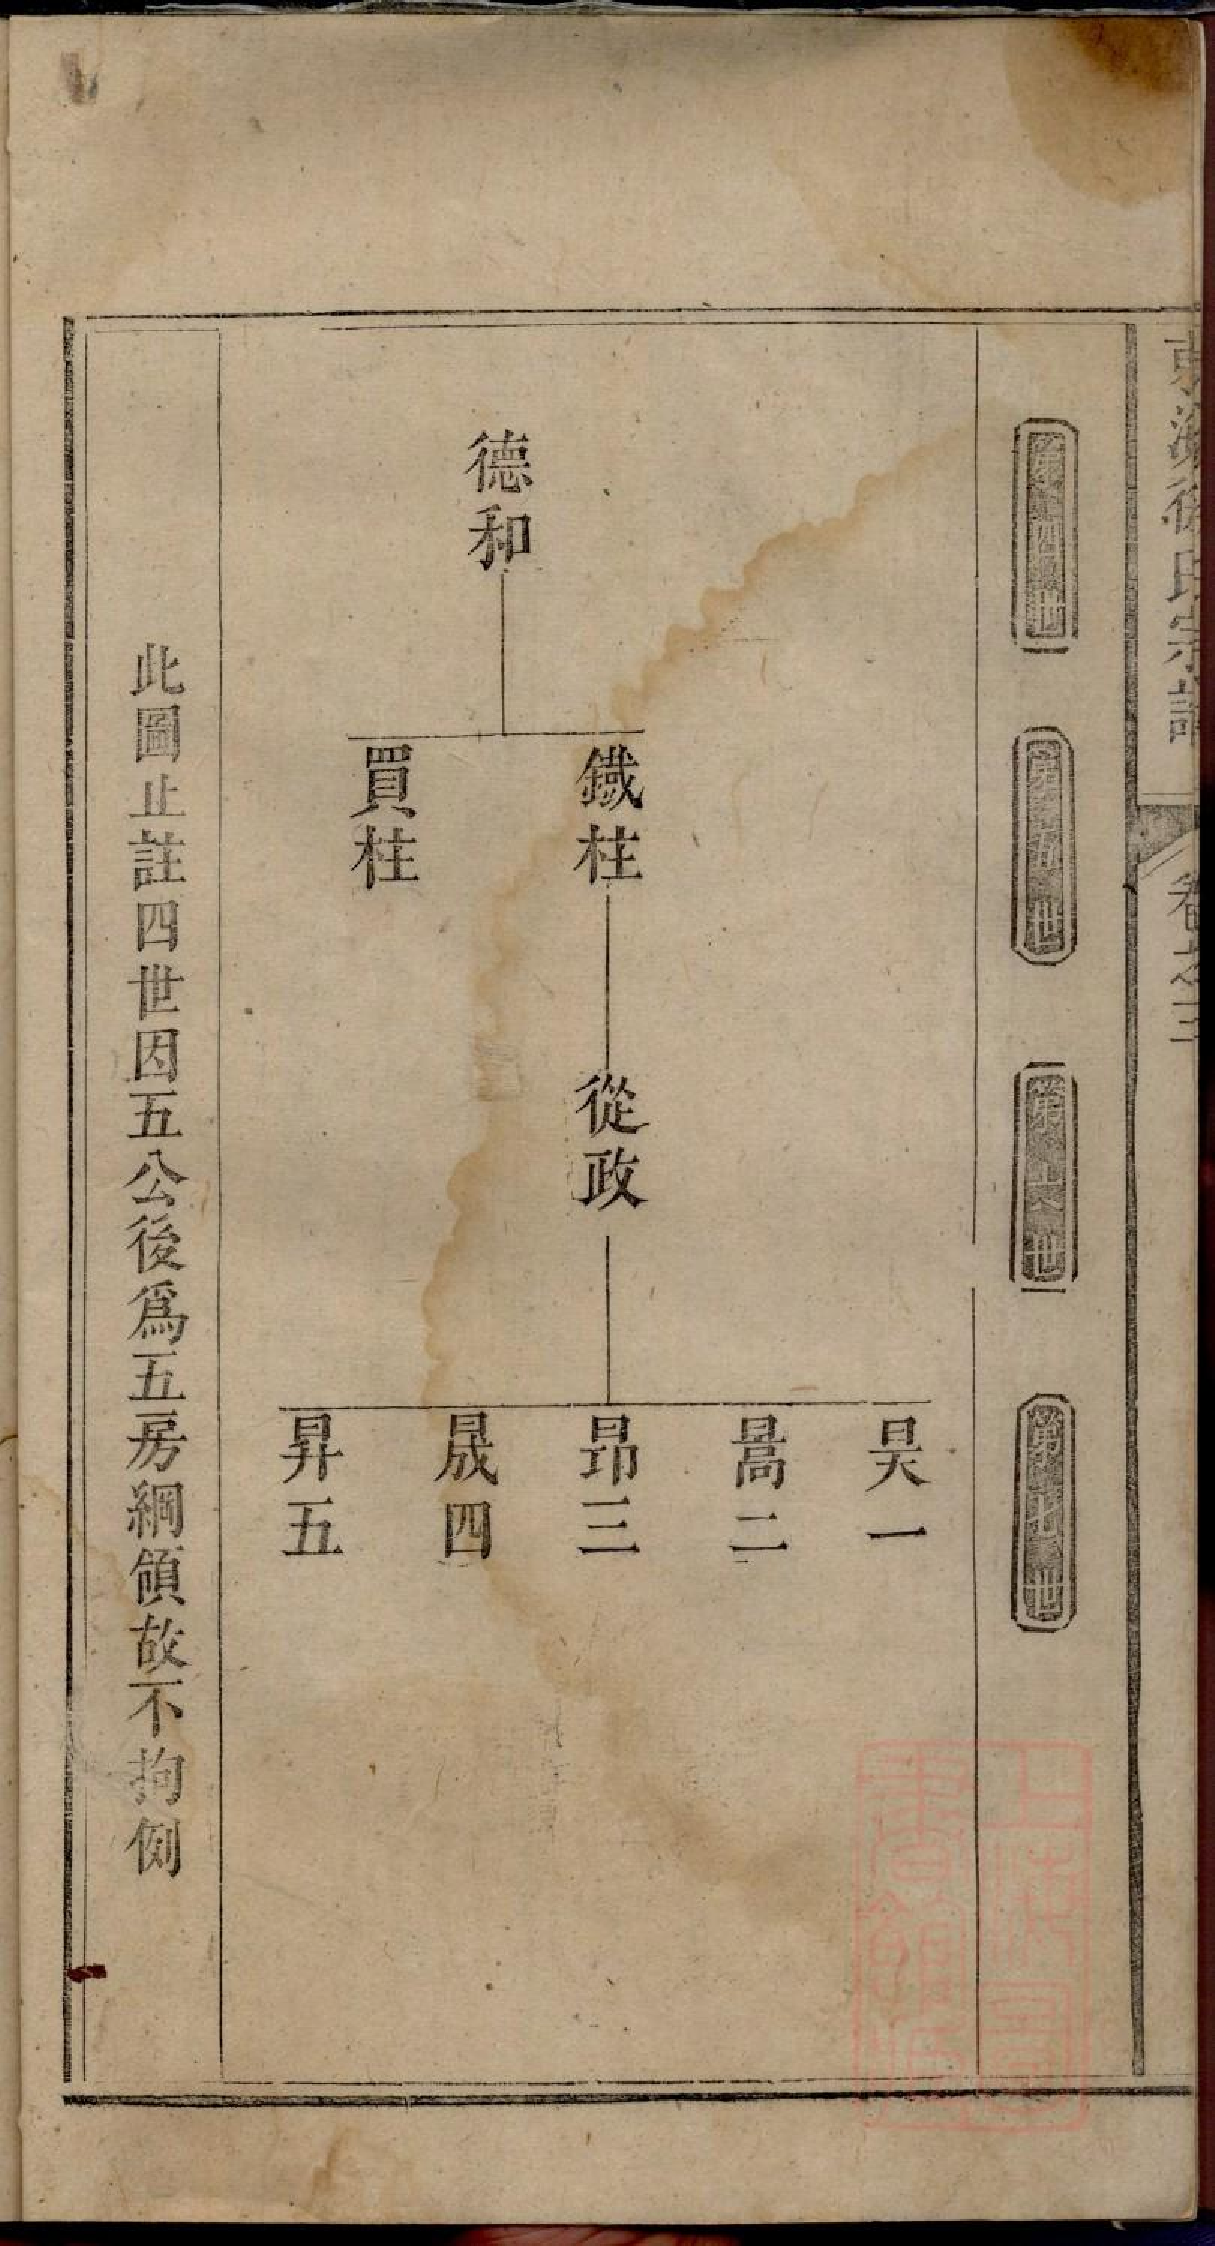 東海徐氏宗譜
卷之三
第四世
第五世
第六世
第七世
德和
鐵柱
買柱
從政
昊一
暠二
昂三
晟四
昇五
此圖止註四世因五公後爲五房綱領故不拘例